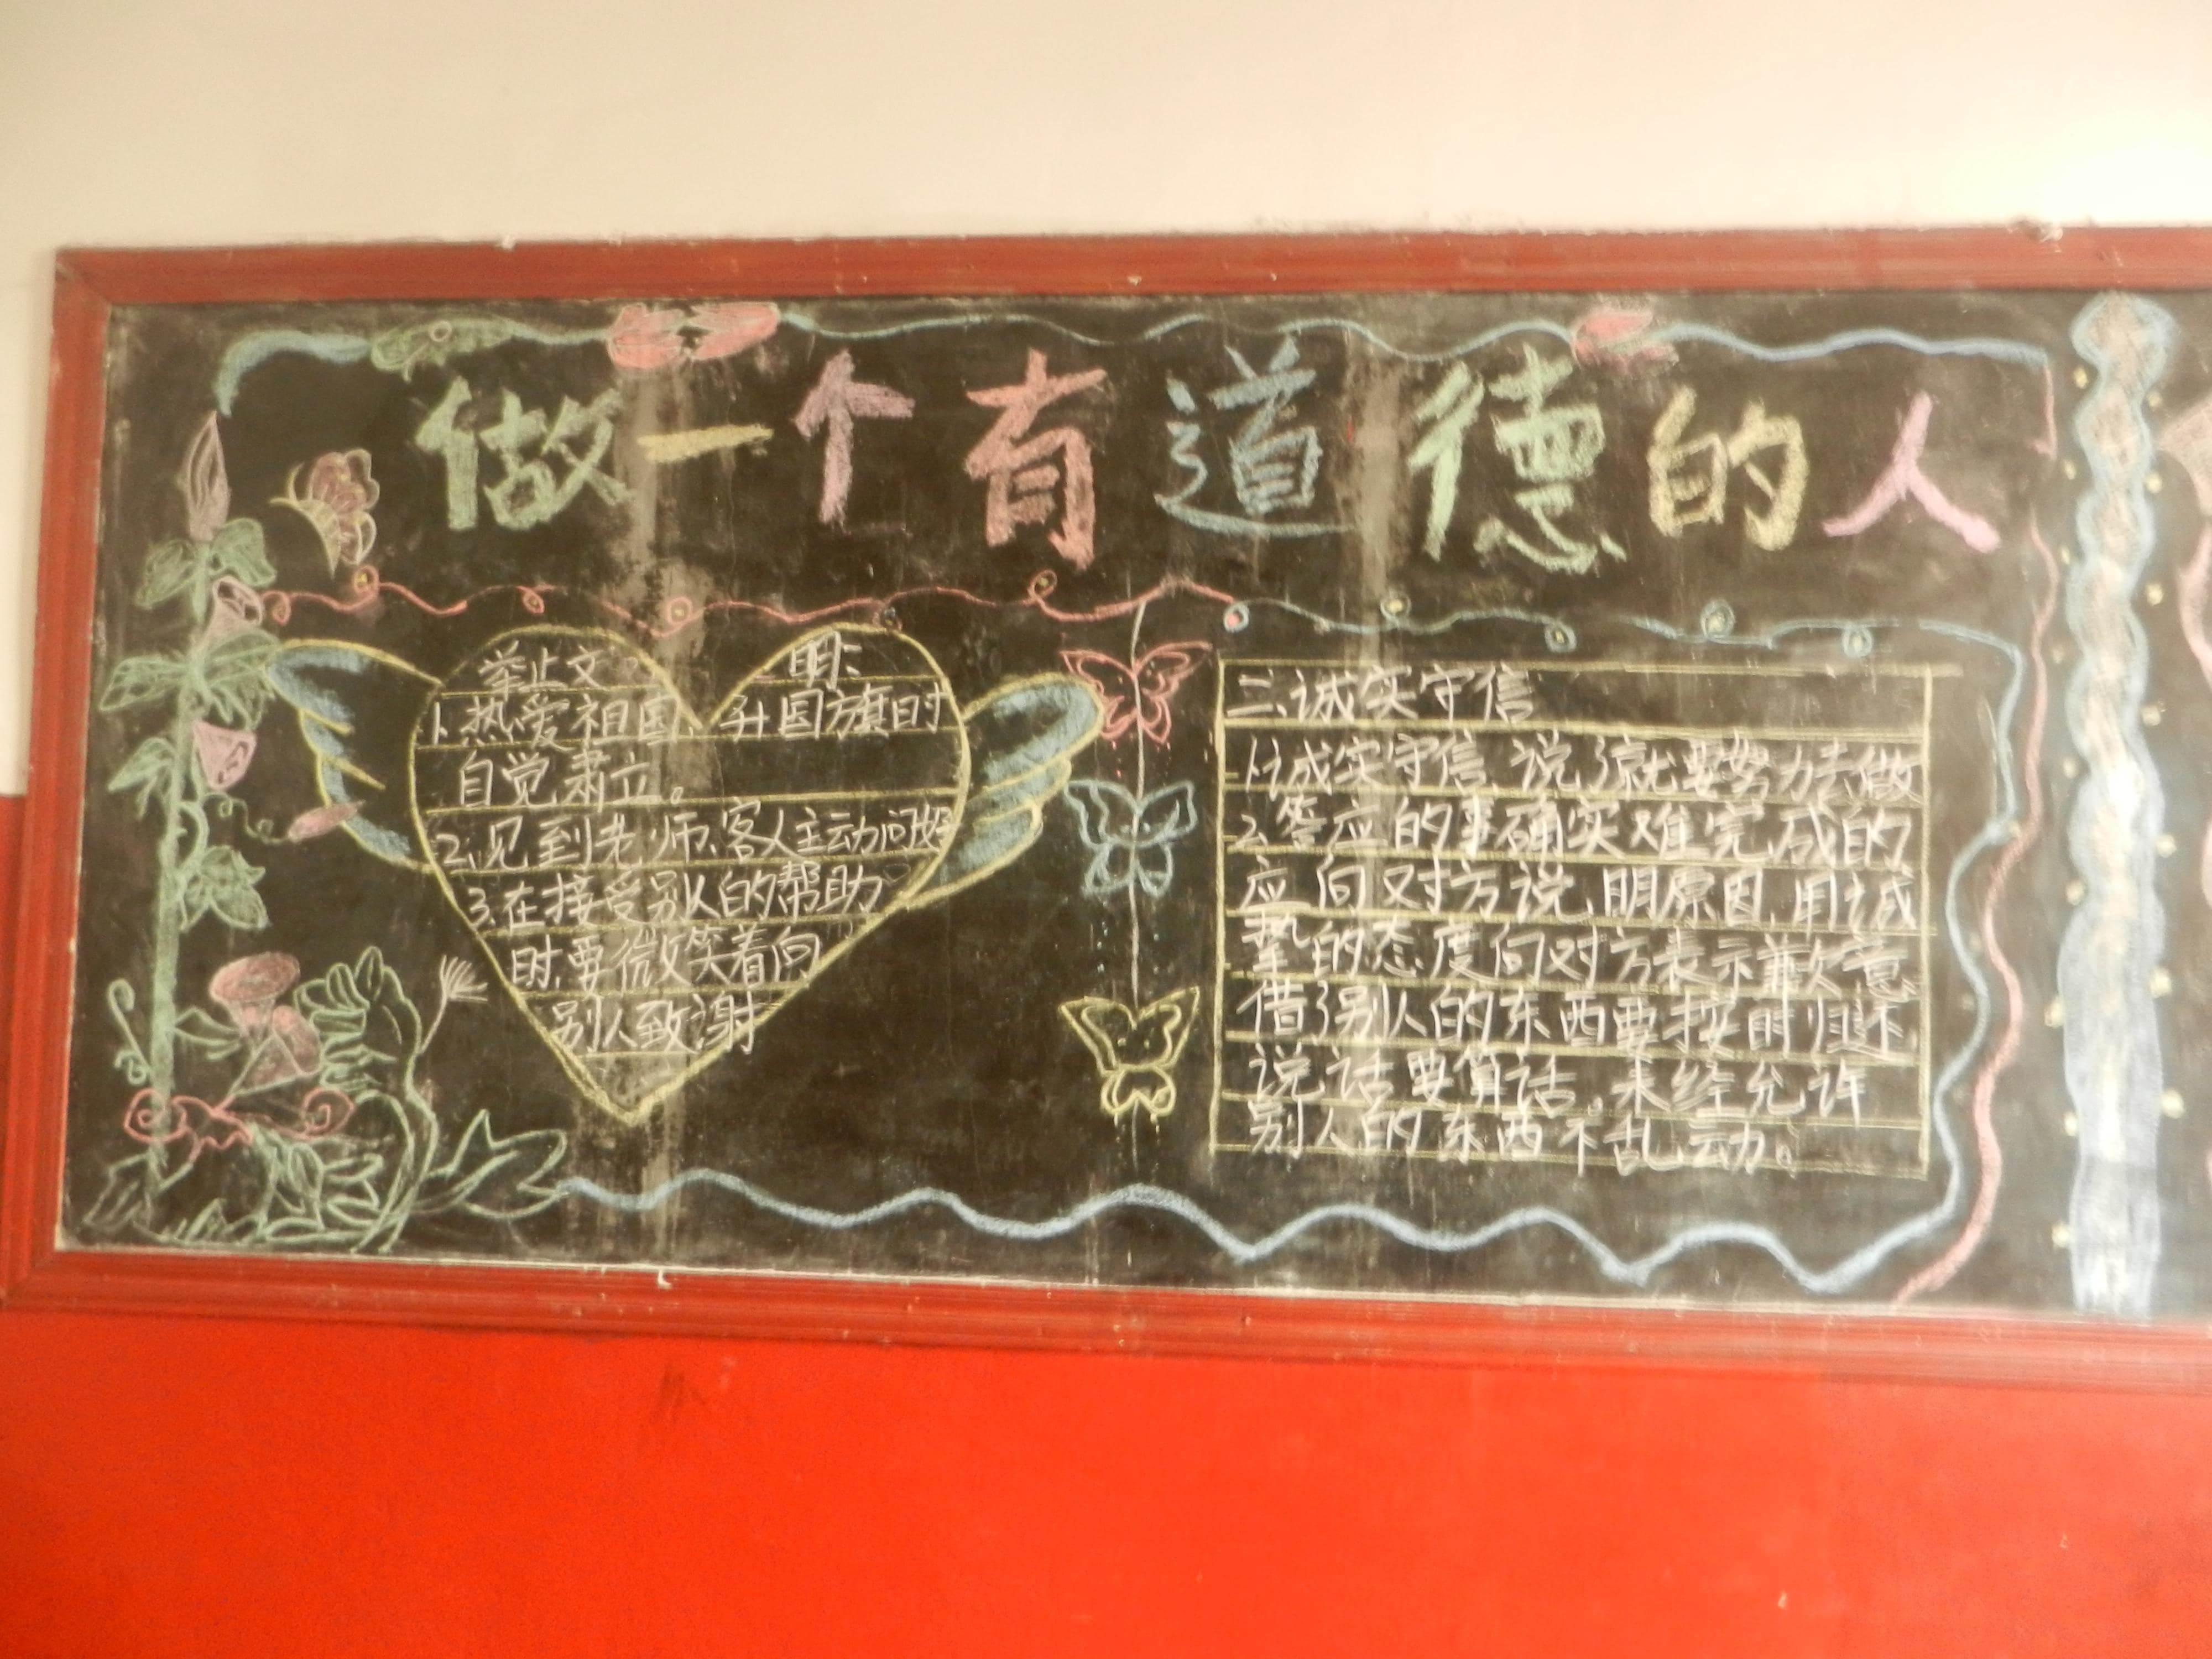 做一个有道德的人
举止文明:
1、热爱祖国、升国旗时
自觉肃立。
2、见到老师、客人主动问好
3、在接受别人的帮助
时、要微笑着向
别人致谢
二、诚实守信
1、诚实守信、说了就要努力去做
2、答应的事确实难完成的
应向对方说明原因、用诚
挚的态度向对方表示歉意
借了别人的东西要按时归还、
说话要算话、未经允许
别人的东西不乱动。